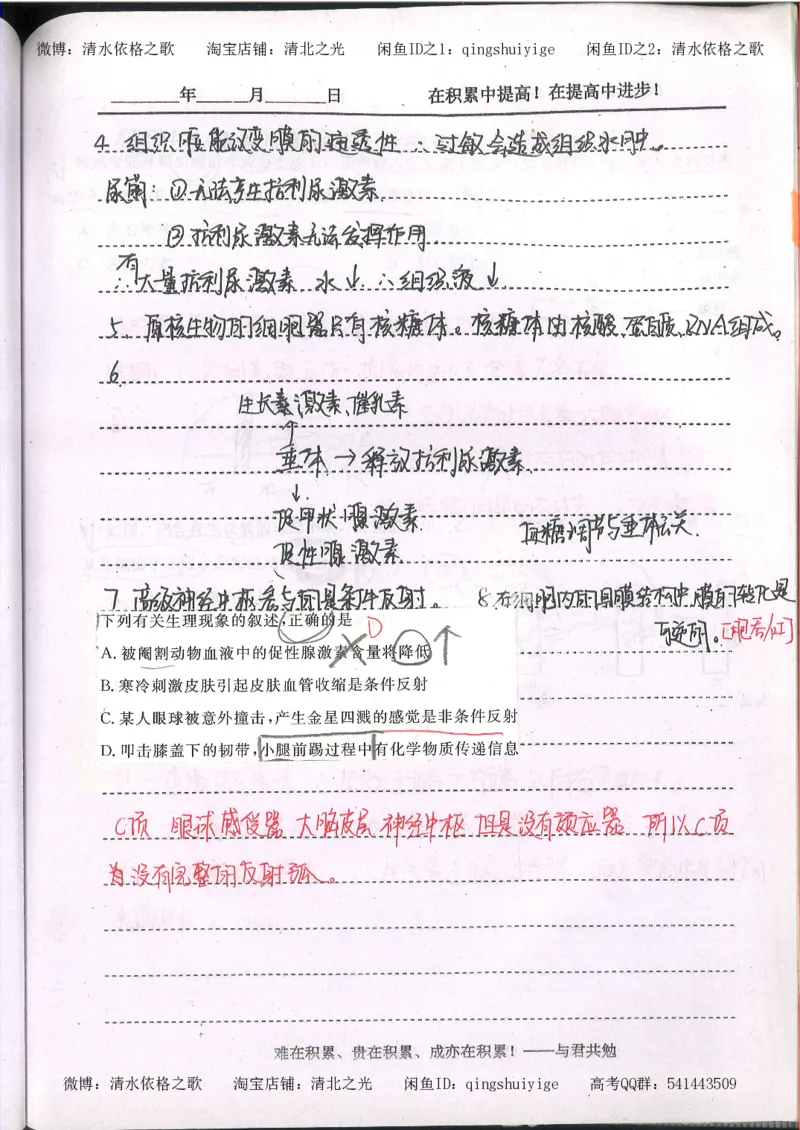 微博：清水依格之歌 淘宝店铺：清北之光 闲鱼ID之1：qingshuiyige 闲鱼ID之2：清水依格之歌
年 月 日 在积累中提高！在提高中进步！
4. 组织胺能改变膜的通透性 ∴过敏会造成组织水肿。
尿崩：①无法产生抗利尿激素.
②抗利尿激素无法发挥作用.
有
∴大量抗利尿激素 水↓ ∴组织液↓.
5. 原核生物的细胞器只有核糖体。核糖体由核酸.蛋白质.RNA组成。
6.
生长素激素、催乳素
↑
垂体→释放抗利尿激素.
↓
促甲状腺激素 血糖调节与垂体无关.
促性腺激素
7. 高级神经中枢参与的是条件反射。 8.在细胞内的
下列有关生理现象的叙述,正确的是 D 可逆的。
A. 被阉割动物血液中的促性腺激素含量将降低 ↑
B. 寒冷刺激皮肤引起皮肤血管收缩是条件反射
C. 某人眼球被意外撞击,产生金星四溅的感觉是非条件反射
D. 叩击膝盖下的韧带,小腿前踢过程中有化学物质传递信息
C项 眼球感受器 大脑皮层 神经中枢 但是没有效应器 所以C项
为没有完整的反射弧。
难在积累、贵在积累、成亦在积累！——与君共勉
微博：清水依格之歌 淘宝店铺：清北之光 闲鱼ID：qingshuiyige 高考QQ群：541443509